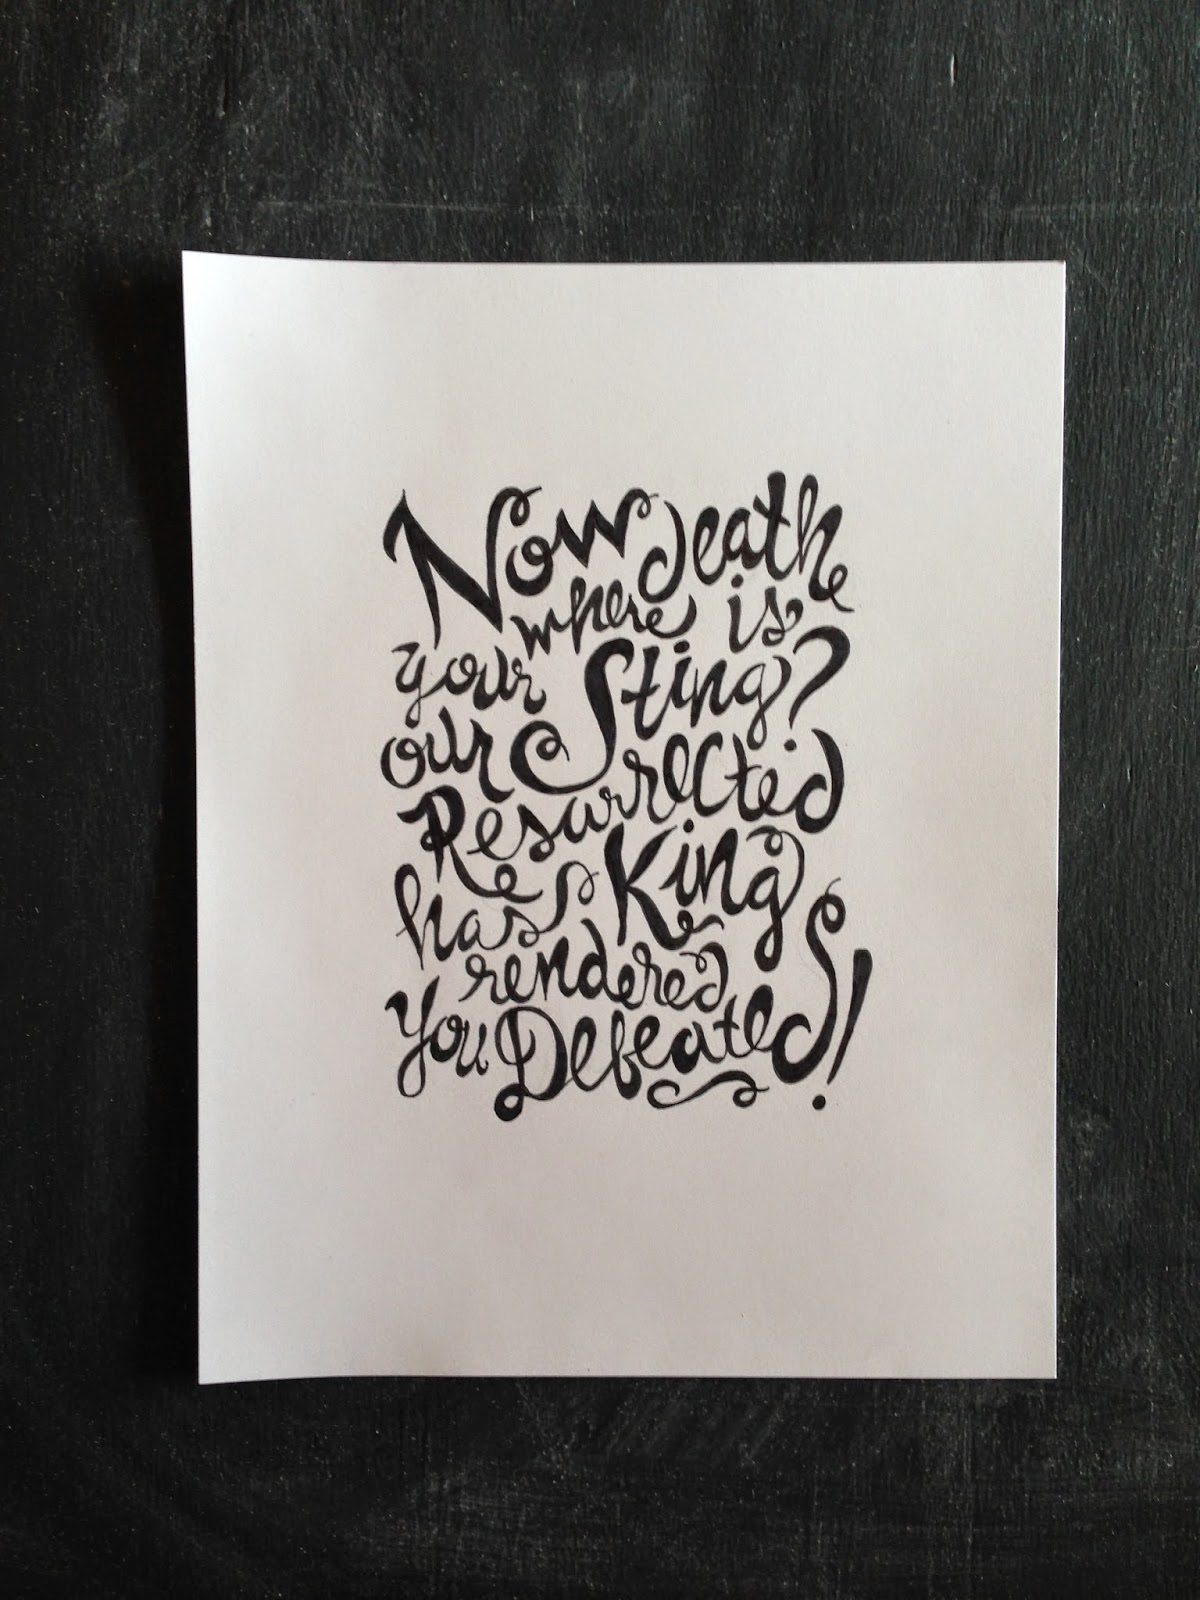 Now death
where is
your Sting?
our
Resurrected
has King
rendered
You Defeated!